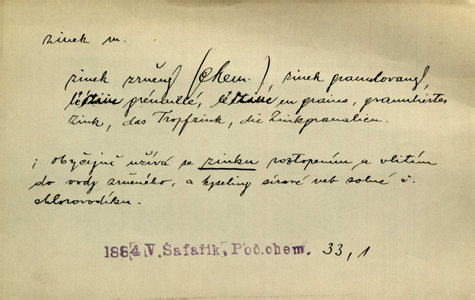 zinek m.
zinek zrněný (chem.), zinek granulovaný,
grénaillé, en grains, granuliertes
Zink, das Tropfzink, die Zinkgranalien.
; Obyčejně užívá se zinku roztopením a vlitím
do vody zrněného, a kyseliny sírové neb solné č.
chlorovodíku.
1884 V. Šafařík, Poč. chem. 33, 1